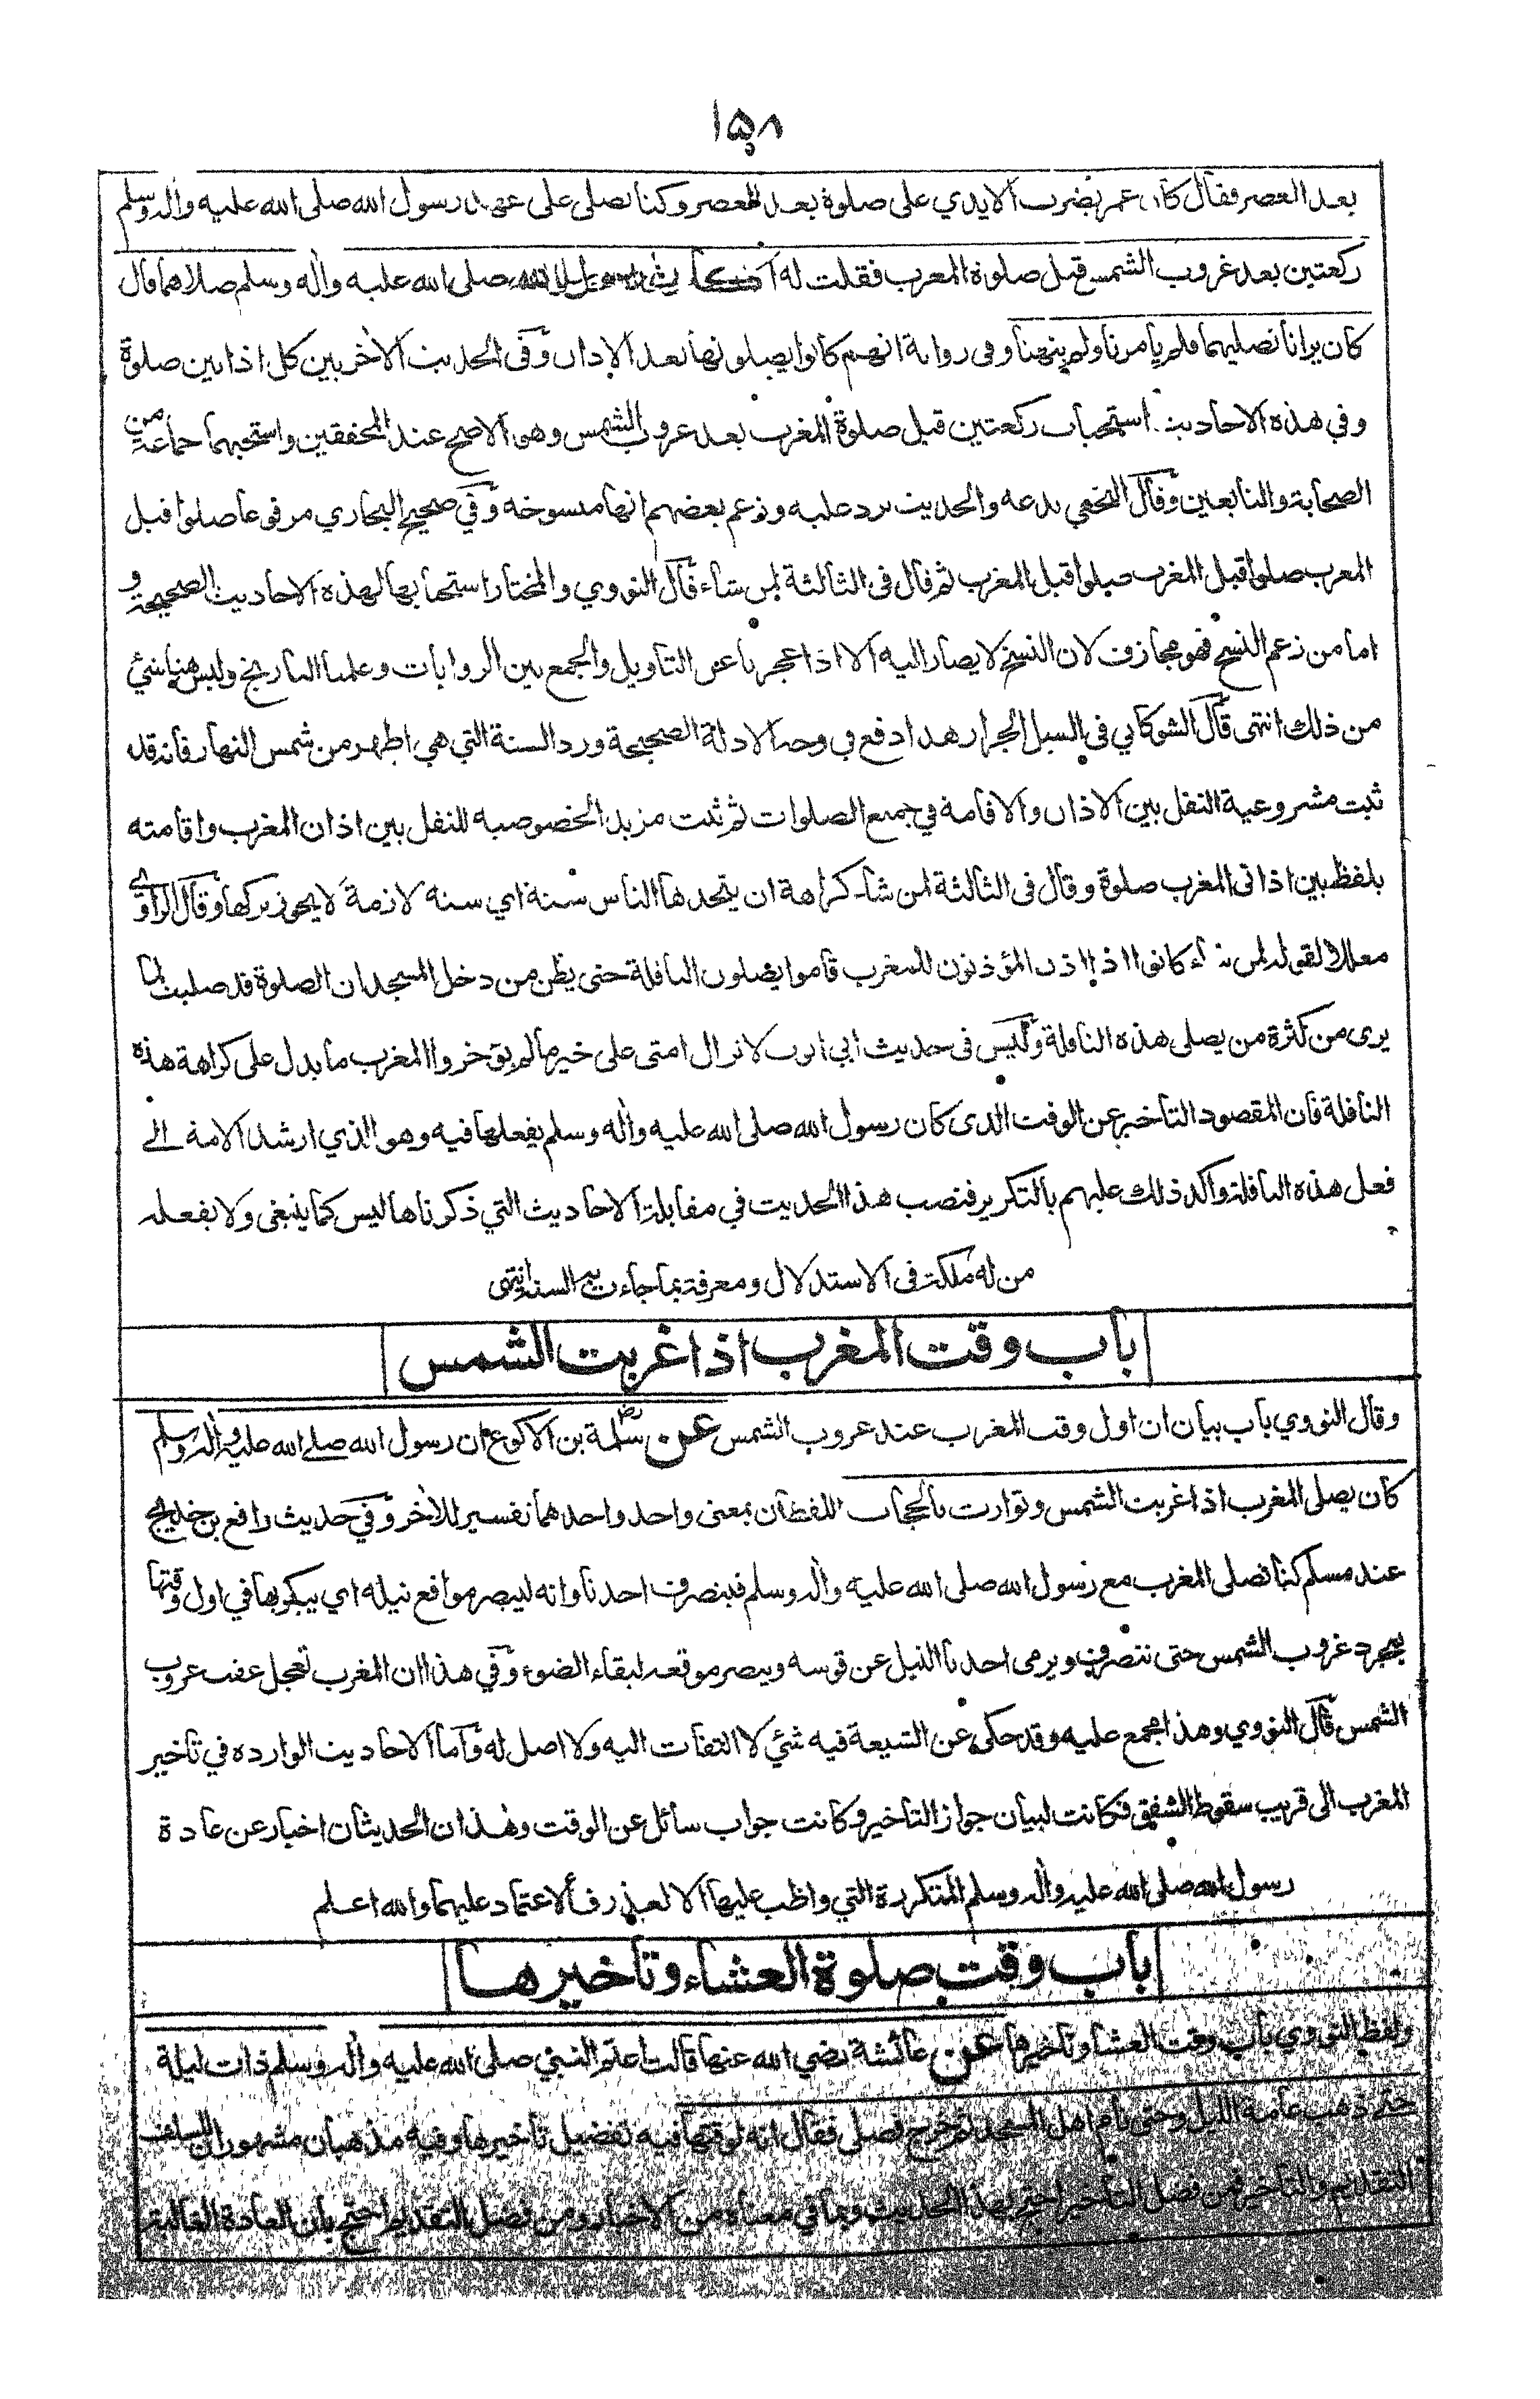 ١٥٨
بعد العصر فقال كان عمر يضرب الايدي على صلوة بعد العصر وكنا نصلى على عهد رسول الله صلى الله عليه واله وسلم
ركعتين بعد غروب الشمس قبل صلوة المغرب فقلت له أكان رسول الله صلى الله عليه واله وسلم صلاهما قال
كان يرانا نصليهما فلم يأمرنا ولم ينهنا وفى رواية انهم كانوا يصلونها بعد الاذان وفى الحديث الاخر بين كل اذانين صلوة
وفي هذه الاحاديث استحباب ركعتين قبل صلوة المغرب بعد غروب الشمس وهو الاصح عند المحققين واستحبهما جماعة من
الصحابة والتابعين وقال النخعي بدعه والحديث يرد عليه وزعم بعضهم انها منسوخه وفي صحيح البخاري مرفوعا صلوا قبل
المغرب صلوا قبل المغرب صلوا قبل المغرب ثم قال فى الثالثة لمن شاء قال النووي والمختار استحبابها لهذه الاحاديث الصحيحة و
اما من زعم النسخ فهو مجازف لان النسخ لا يصار اليه الا اذا عجزنا عن التاويل والجمع بين الروايات وعلمنا التاريخ وليس هنا شئ
من ذلك انتهى قال الشوكاني في السيل الجرار هذا دفع في وجه الادلة الصحيحة ورد السنة التي هي اظهر من شمس النهار فانه قد
ثبت مشروعية النفل بين الاذان والاقامة في جميع الصلوات ثم ثبت مزيد الخصوصيه للنفل بين اذان المغرب واقامته
بلفظ بين اذانى المغرب صلوة وقال فى الثالثة لمن شاء كراهة ان يتخذها الناس سنة اي سنه لازمة لا يجوز تركها وقال الراوي
معللا لقوله لمن شاء كانوا اذا اذن المؤذنون للمغرب قاموا يصلون النافلة حتى يظن من دخل المسجد ان الصلوة قد صليت لما
يرى من كثرة من يصلى هذه النافلة وليس فى حديث ابي ايوب لا تزال امتى على خير ما لم يؤخروا المغرب ما يدل على كراهة هذه
النافلة فان المقصود التأخير عن الوقت الذى كان رسول الله صلى الله عليه واله وسلم يفعلها فيه وهو الذي ارشد الامة الى
فعل هذه النافلة واكد ذلك عليهم بالتكرير فنصب هذا الحديث في مقابلة الاحاديث التي ذكرناها ليس كما ينبغى ولا يفعله
من له ملكة فى الاستدلال ومعرفة بما جاءت به السنة انتهى
باب وقت المغرب اذا غربت الشمس
وقال النووي باب بيان ان اول وقت المغرب عند غروب الشمس عن سلمة بن الاكوع ان رسول الله صلى الله عليه واله وسلم
كان يصلى المغرب اذا غربت الشمس وتوارت بالحجاب اللفظان بمعنى واحد واحدهما تفسير للاخر وفي حديث رافع بن خديج
عند مسلم كنا نصلى المغرب مع رسول الله صلى الله عليه واله وسلم فينصرف احدنا وانه ليبصر مواقع نبله اي يبكر بها في اول وقتها
بمجرد غروب الشمس حتى ننصرف ويرمى احدنا النبل عن قوسه ويبصر موقعه لبقاء الضوء وفي هذا ان المغرب تعجل عقب غروب
الشمس قال النووي وهذا مجمع عليه وقد حكى عن الشيعة فيه شئ لا التفات اليه ولا اصل له واما الاحاديث الوارده في تاخير
المغرب الى قريب سقوط الشفق فكانت لبيان جواز التاخير وكانت جواب سائل عن الوقت وهذان الحديثان اخبار عن عادة
رسول الله صلى الله عليه واله وسلم المتكررة التي واظب عليها الا لعذر فالاعتماد عليهما والله اعلم
باب وقت صلوة العشاء وتاخيرها
ولفظ النووي باب وقت العشاء وتاخيرها عن عائشة رضي الله عنها قالت اعتم النبي صلى الله عليه واله وسلم ذات ليلة
حتى ذهب عامة الليل وحتى نام اهل المسجد ثم خرج فصلى فقال انه لوقتها فيه تفضيل تاخيرها وفيه مذهبان مشهوران للسلف
التقديم والتاخير فمن فضل التاخير احتج بهذا الحديث وبما في معناه من الاخبار ومن فضل التقديم احتج بان العادة الغالبة